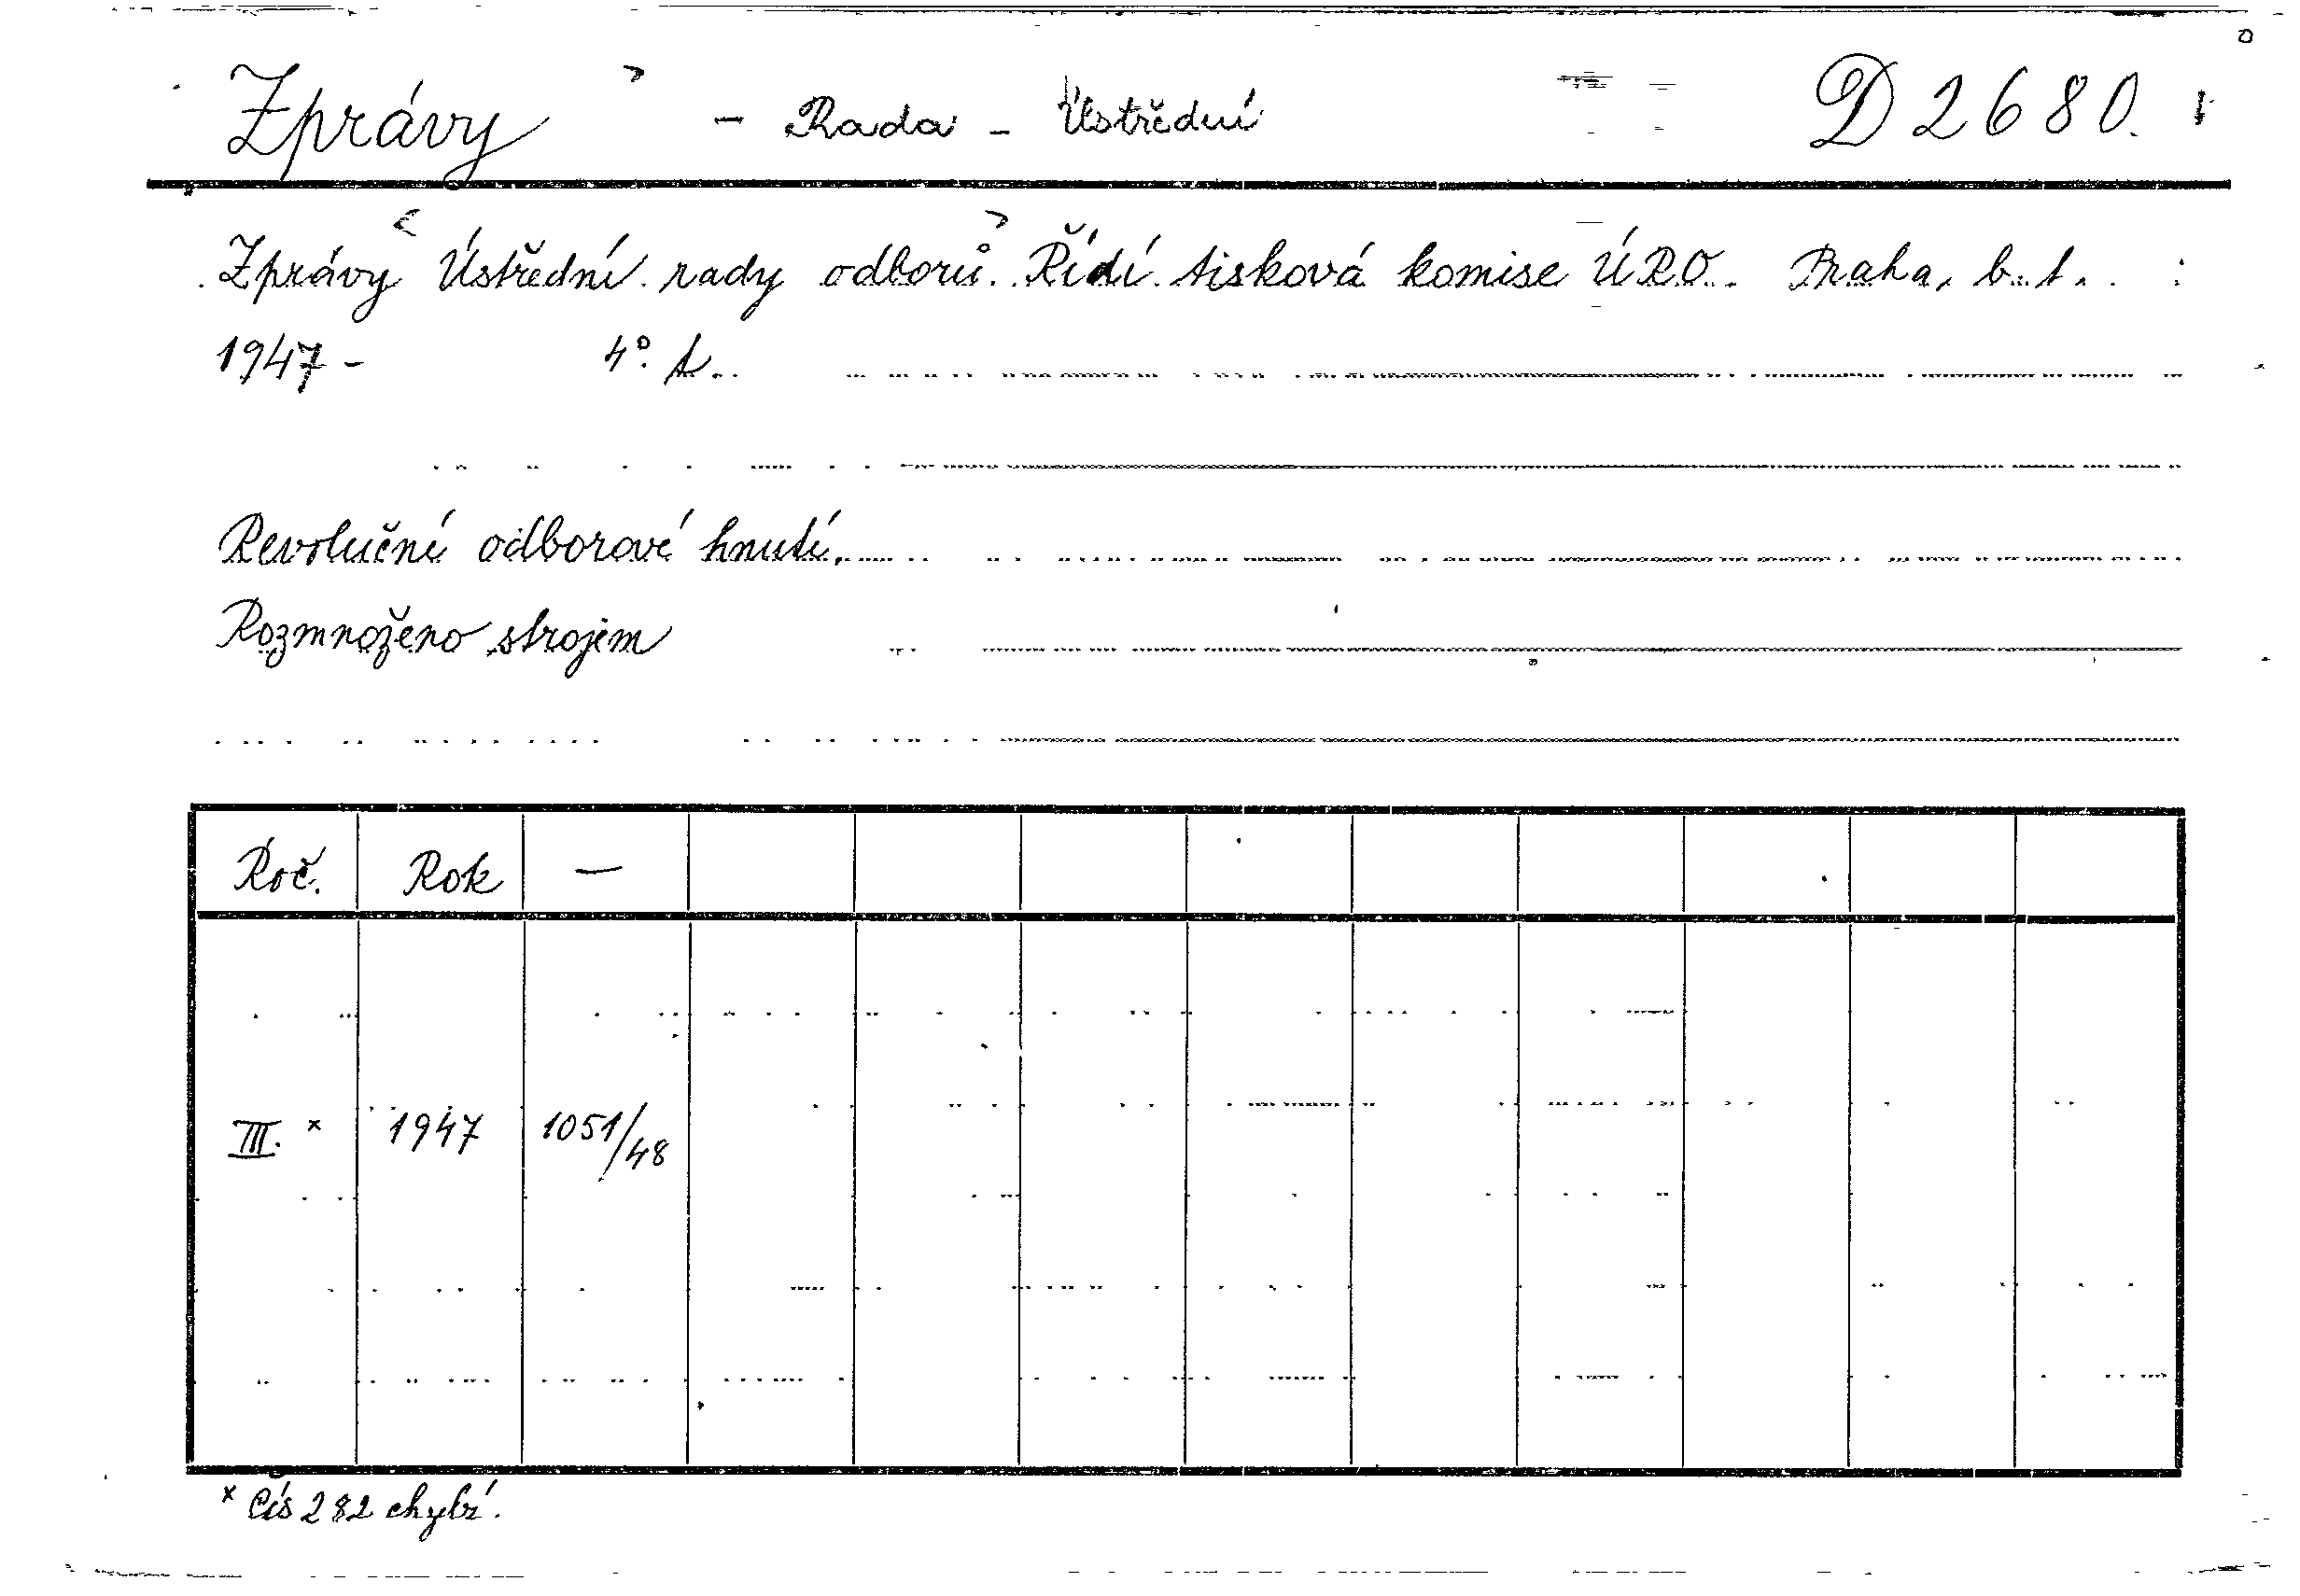 Zprávy - Rada - Ústřední D 2680.
Zprávy Ústřední rady odborů. Řídí tisková komise ÚRO. Praha, b. t.
1947 - 4° A.
Revoluční odborové hnutí.
Rozmnoženo strojem
Roč. Rok —
III. x 1947 1051/48
x Čís 282 chybí.